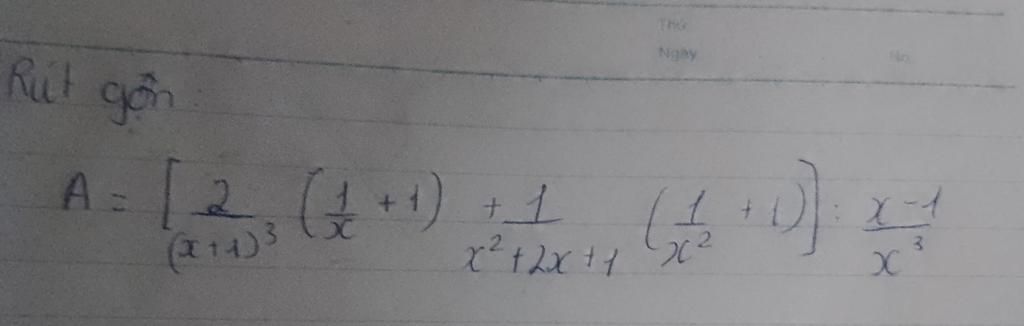 Thứ
Ngày No.
Rút gọn:
A = [2/(x+1)³ (1/x + 1) + 1/(x²+2x+1) (1/x² + 1)] : (x-1)/x³